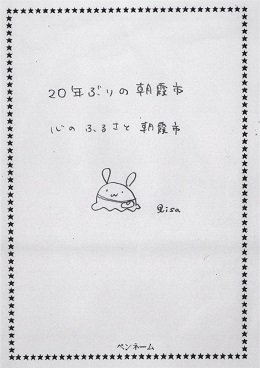 20年ぶりの朝霞市
心のふるさと 朝霞市
Risa
ペンネーム